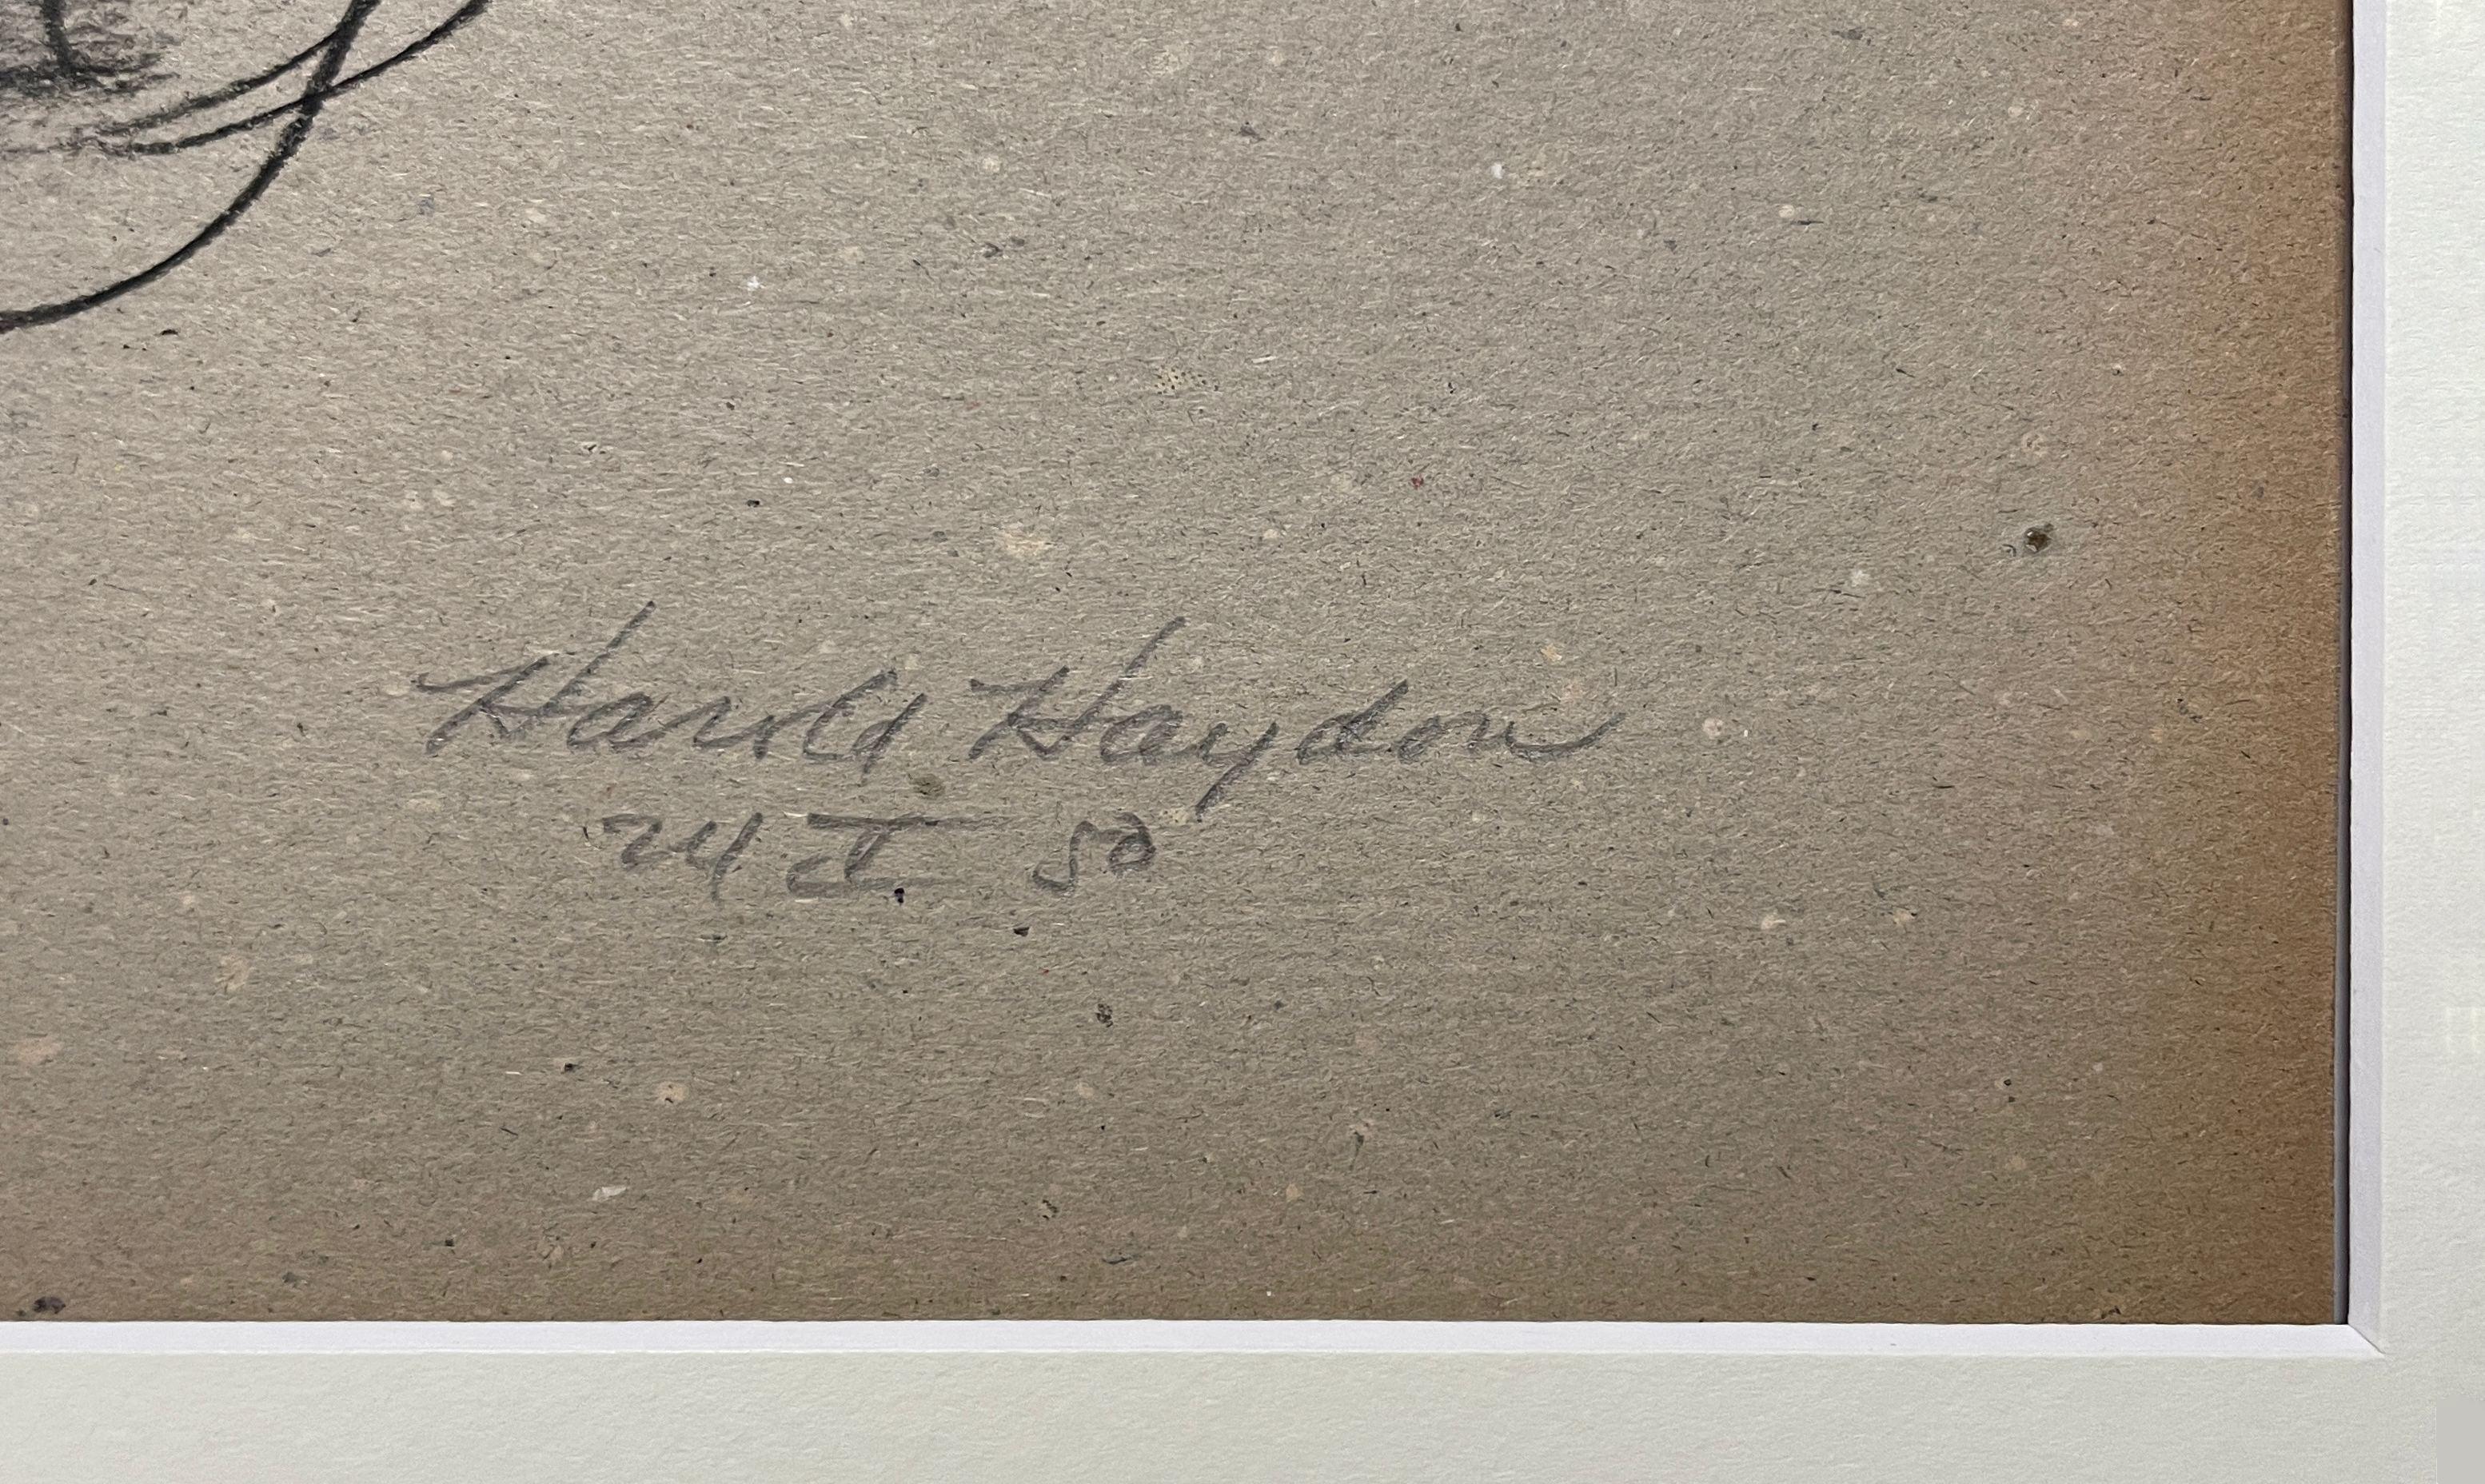 Harold Haydon
24 I 50